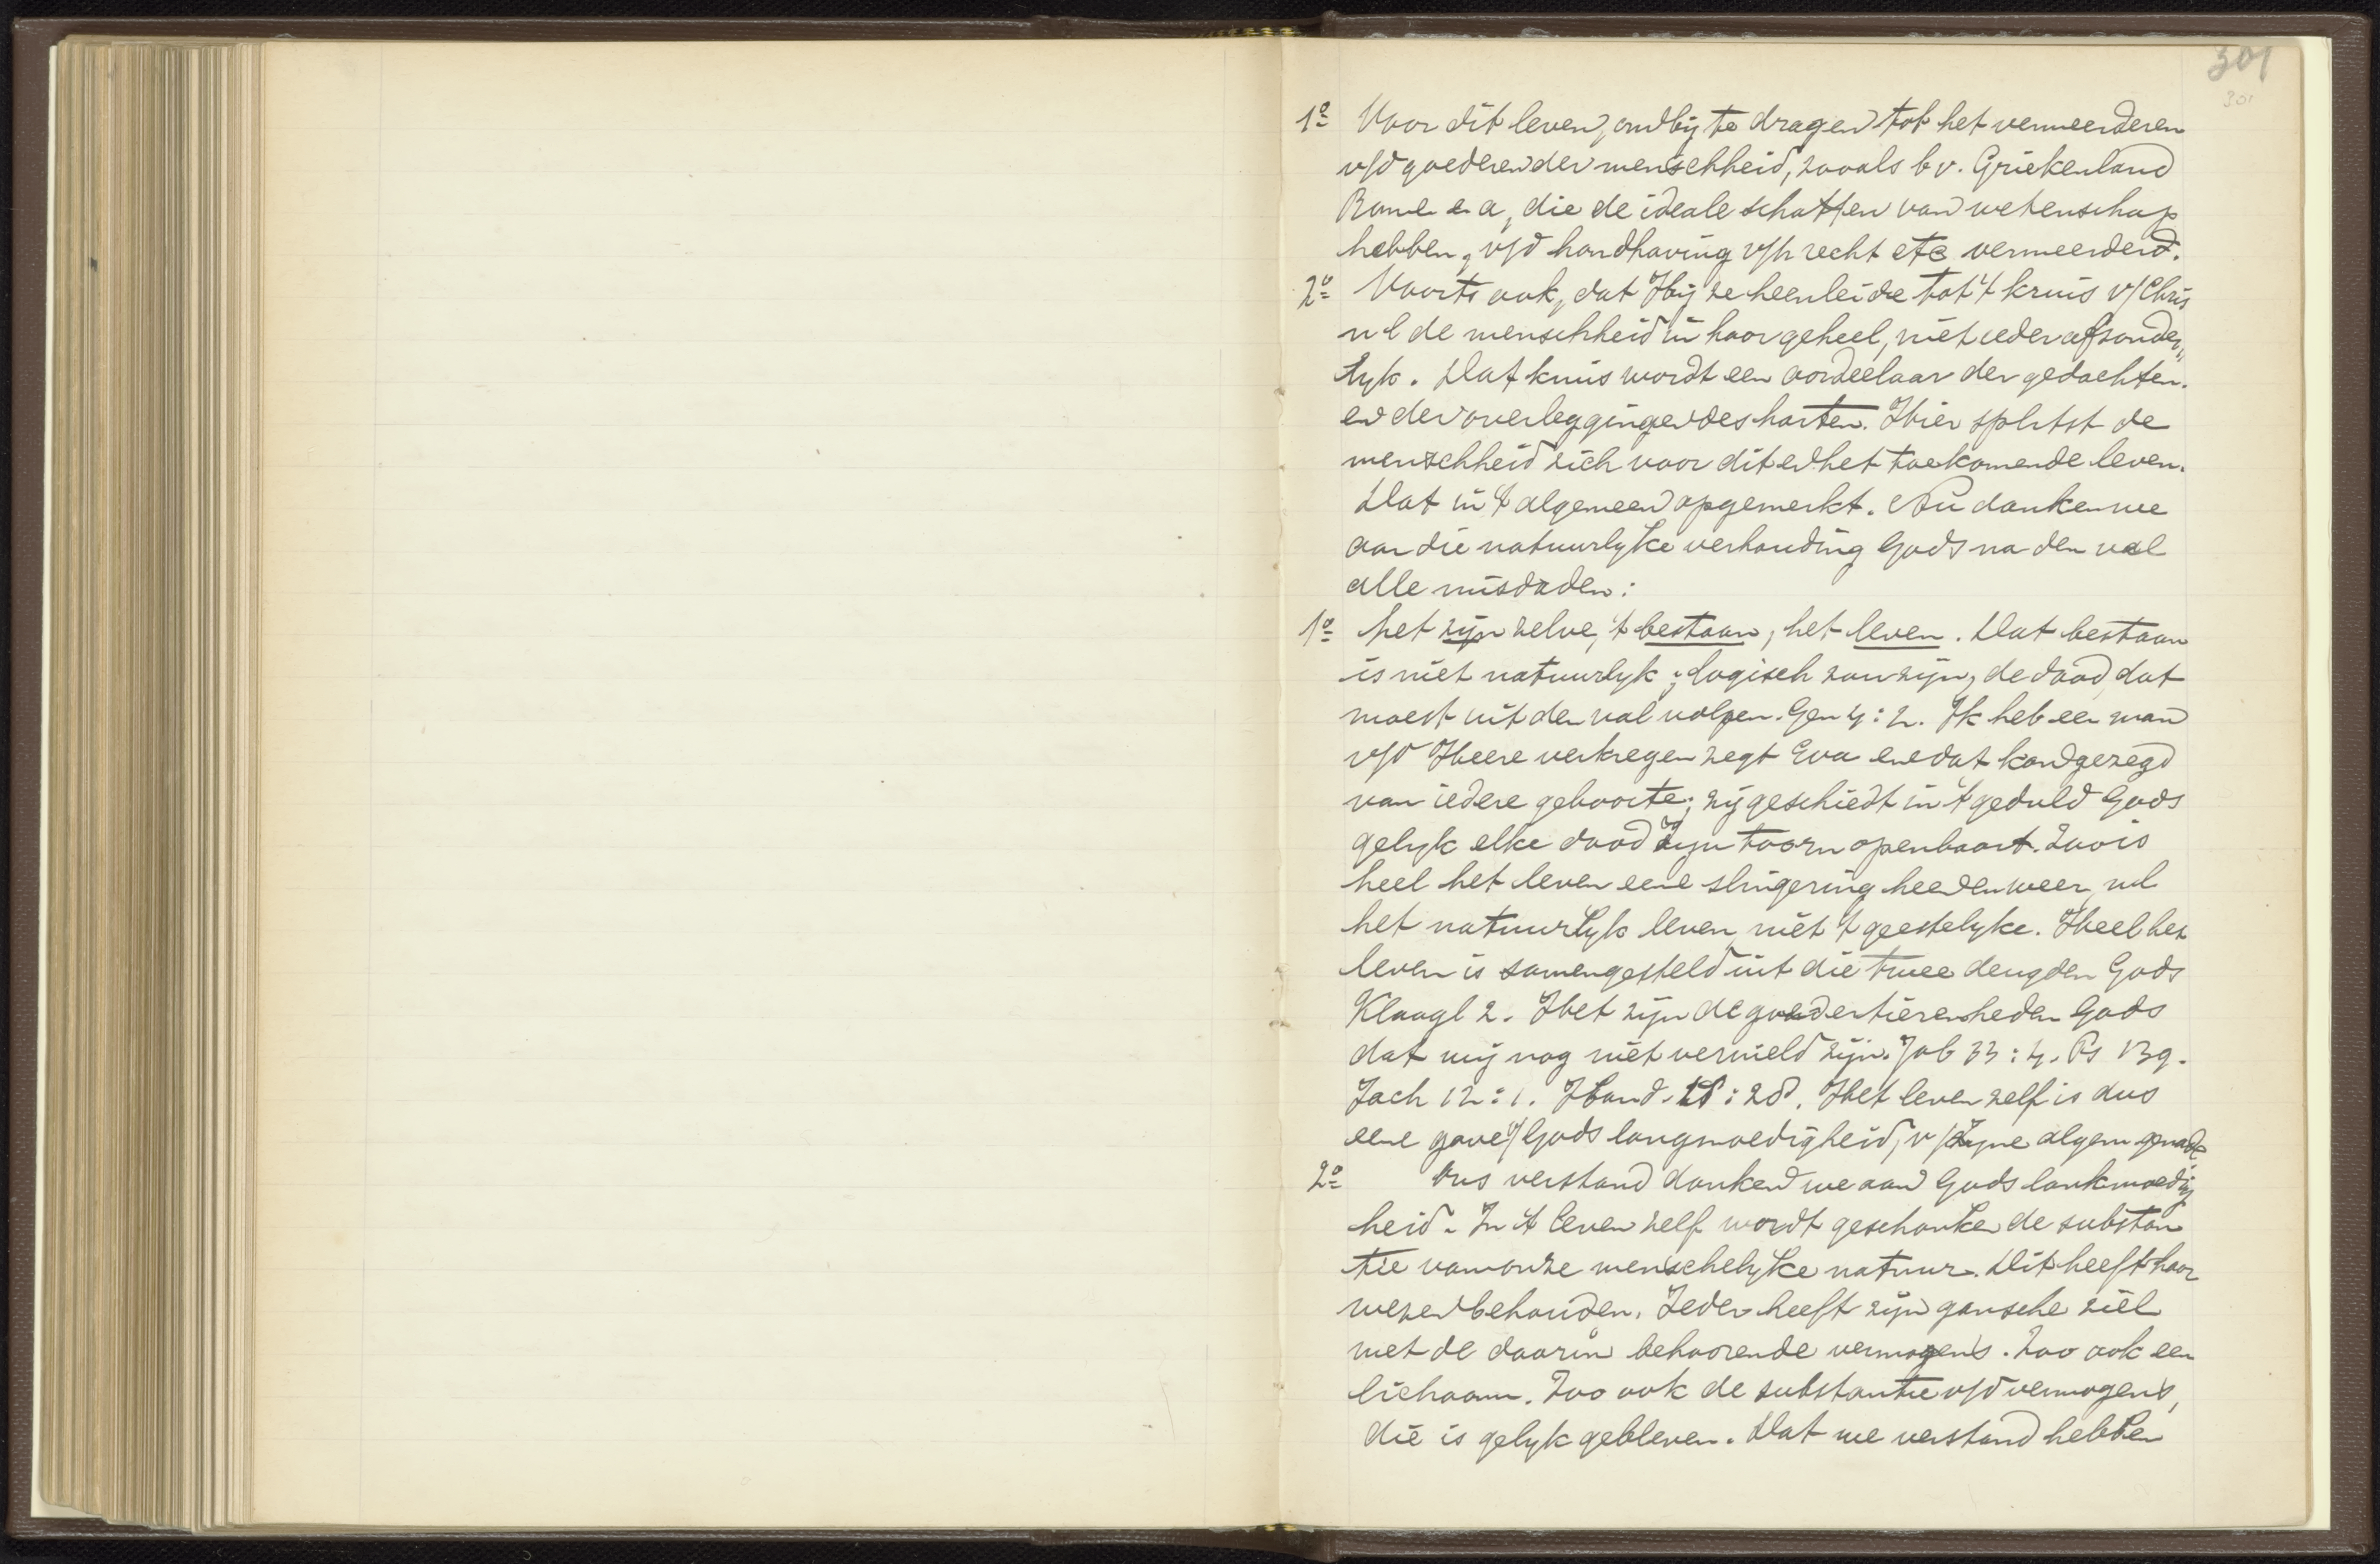 301
301
1º Voor dit leven, om bij te dragen tot het vermeerderen
v/d goederen der menschheid, zooals bv. Griekenland
Rome e a, die de ideale schatten van wetenschap
hebben, v/d handhaving v/h recht etc vermeerderd.
2º Voorts ook, dat Hij ze heenleidde tot 't kruis v/Chris
nl de menschheid in haar geheel, niet ieder afzonder„
lyk. Dat kruis wordt een oordeelaar der gedachten.
en der overleggingen des harten. Hier splitst de
menschheid zich voor dit en het toekomende leven.
Dat in 't algemeen opgemerkt. Nu danken we
aan die natuurlyke verhouding Gods na den val
alle misdaden:
1º het zijn zelve, 't bestaan, het leven. Dat bestaan
is niet natuurlyk; logisch zou zijn, de dood, dat
moest uit den val volgen. Gen 4:2. Ik heb een man
v/d Heere verkregen zegt Eva en dat kan gezegd
van iedere geboorte; zij geschiedt in 't geduld Gods
gelyk elke dood Zijn toorn openbaart. Zoo is
heel het leven eene slingering heen en weer, nl
het natuurlyk leven niet 't geestelyke. Heel het
leven is samengesteld uit die twee deugden Gods
Klaagl 2. Het zijn de goedertierenheden Gods
dat wij nog niet vernield zijn. Job 33:4. Ps 139.
Zach 12:1. Hand. :28. Het leven zelf is dus
eene gave v/Gods langmoedigheid, v/Zyne algem genade
2º Ons verstand danken we aan Gods lankmoedig
heid. In 't leven zelf wordt geschonken de substan
tie van onze menschelyke natuur. Dit heeft haar
wezen behouden. Ieder heeft zijn gansche ziel
met de daarin behoorende vermogens. Zoo ook een
lichaam. Zoo ook de substantie v/d vermogens,
die is gelyk gebleven. Dat we verstand hebben